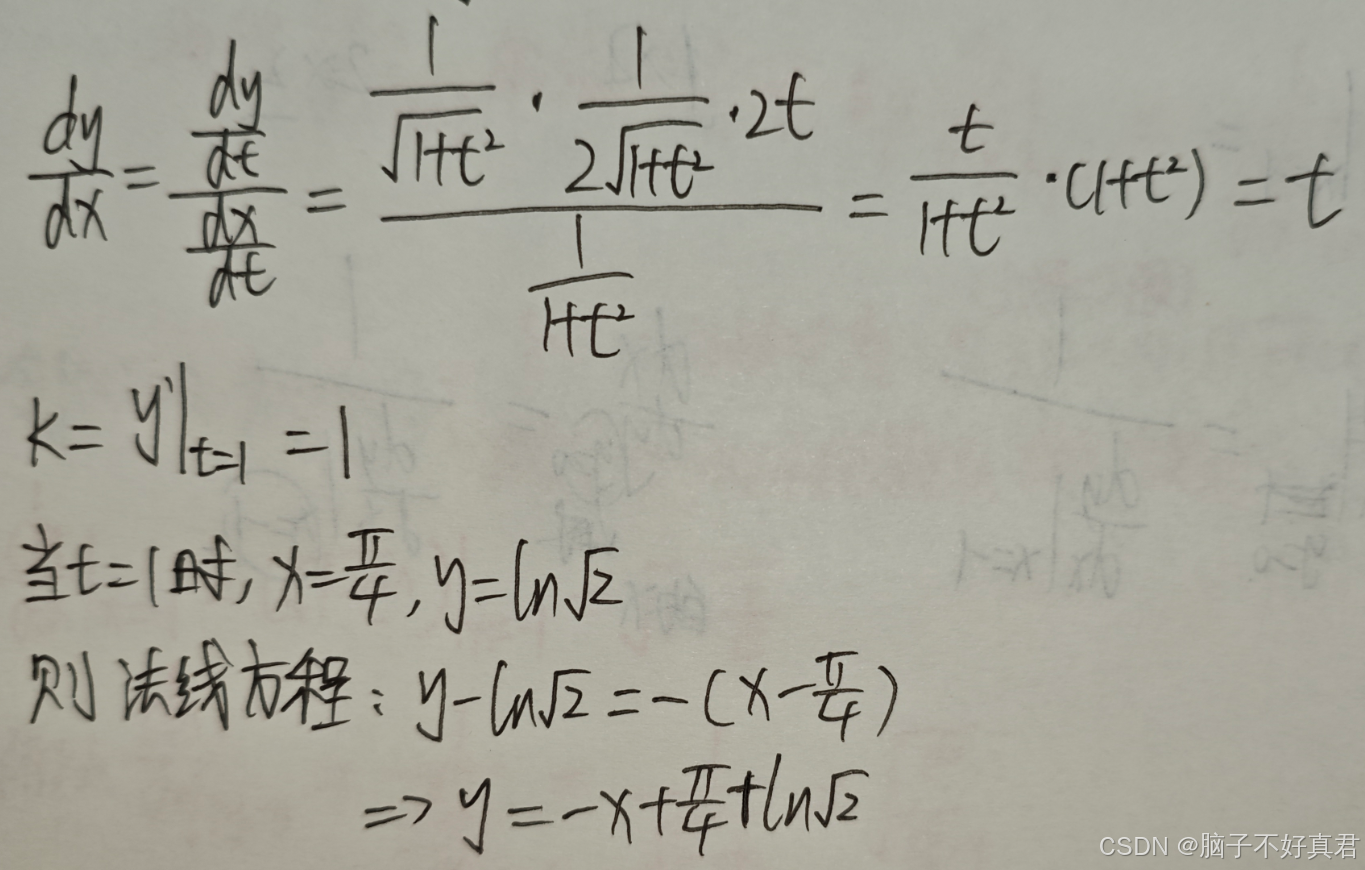 $\frac{dy}{dx} = \frac{\frac{dy}{dt}}{\frac{dx}{dt}} = \frac{\frac{1}{\sqrt{1+t^2}} \cdot \frac{1}{2\sqrt{1+t^2}} \cdot 2t}{\frac{1}{1+t^2}} = \frac{t}{1+t^2} \cdot (1+t^2) = t$
$k = y'|_{t=1} = 1$
当 $t=1$ 时, $x=\frac{\pi}{4}, y=\ln\sqrt{2}$
则法线方程: $y-\ln\sqrt{2}=-(x-\frac{\pi}{4})$
$\Rightarrow y=-x+\frac{\pi}{4}+\ln\sqrt{2}$
CSDN @脑子不好真君